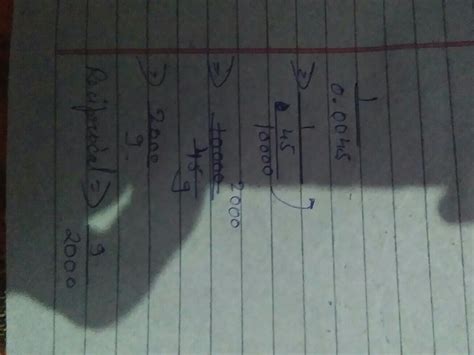 1/0.0045
⇒ 1/(45/10000)
⇒ 10000/45 2000 9
⇒ 2000/9
Reciprocal ⇒ 9/2000